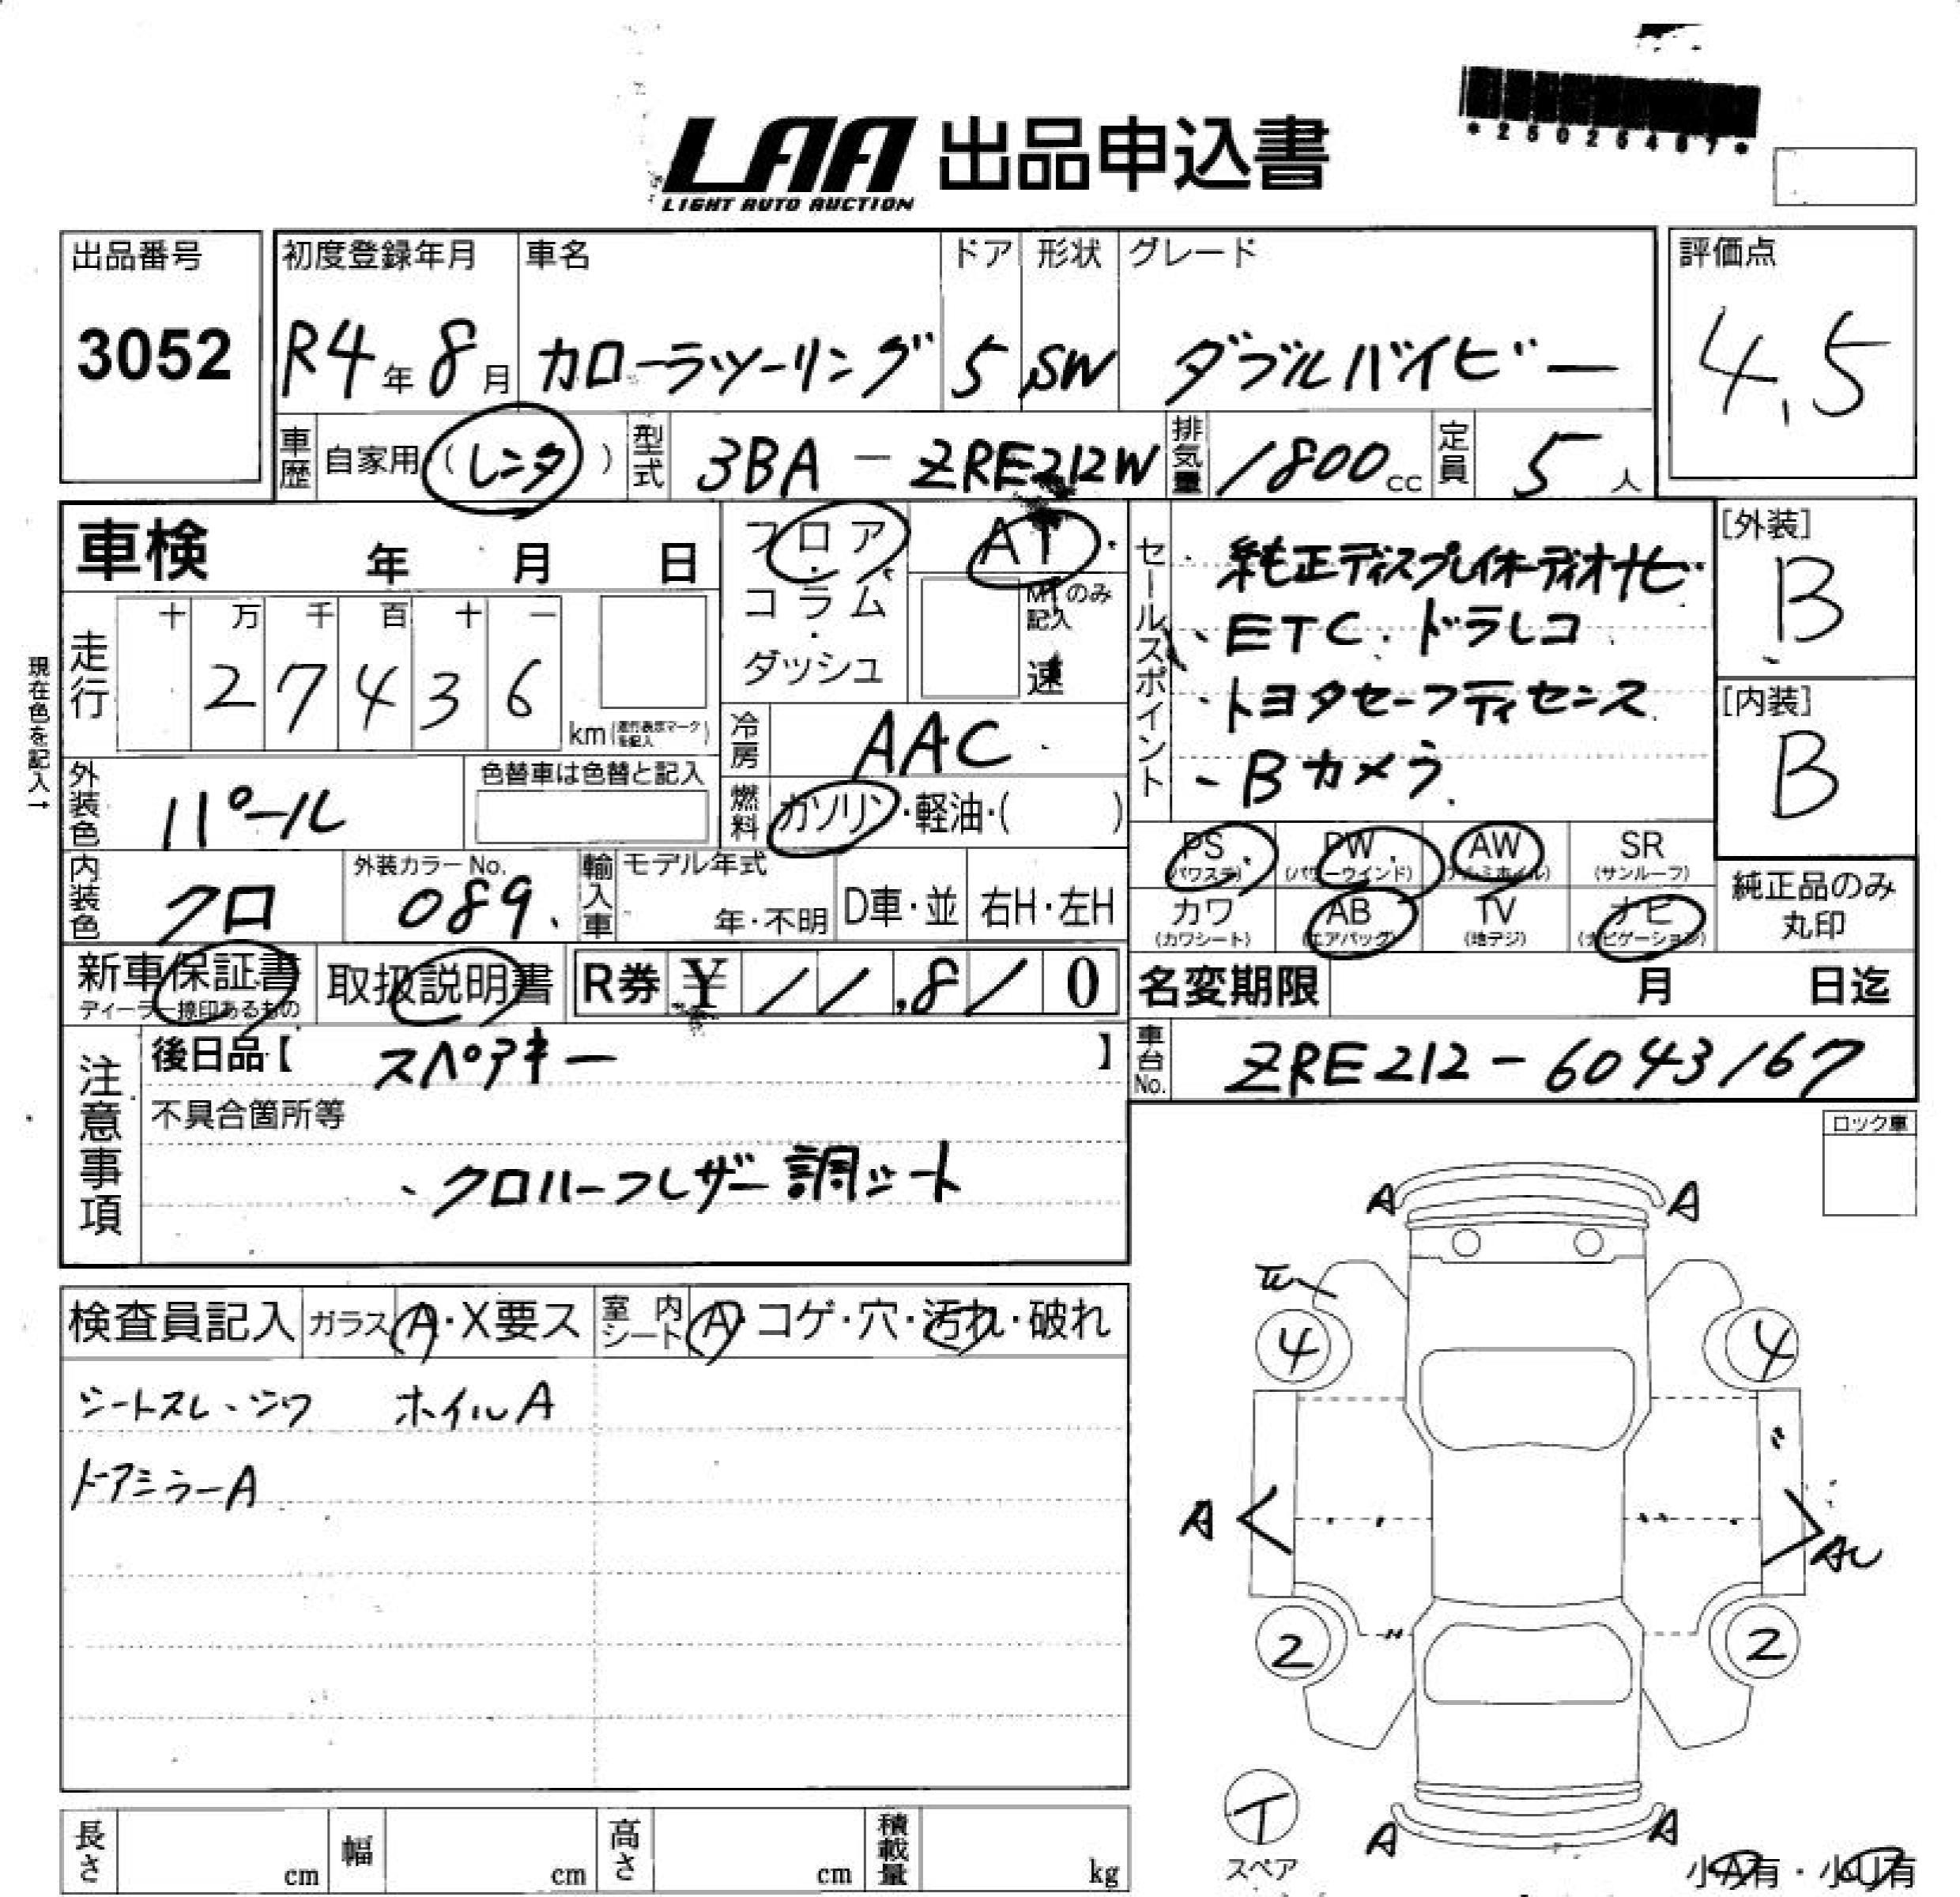 *25025467*
LAA 出品申込書
LIGHT AUTO AUCTION
出品番号 初度登録年月 車名 ドア 形状 グレード 評価点
3052 R4年8月 カローラツーリング 5 SW ダブルバイビー 4.5
車歴 自家用(レンタ) 型式 3BA-ZRE212W 排気量 1800cc 定員 5人
車検 年 月 日
フロア・コラム・ダッシュ
AT・
MTのみ記入
速
セールスポイント
・純正ディスプレイオーディオナビ
・ETC.ドラレコ
・トヨタセーフティセンス
・Bカメラ
[外装]
B
[内装]
B
現在色を記入→
走行 十 万 千 百 十 一
27436 km(走行表示マークを記入)
冷房 AAC
外装色 パール 色替車は色替と記入
燃料 ガソリン・軽油・( )
内装色 クロ 外装カラーNo. 089. 輸入車 モデル年式 年・不明 D車・並 右H・左H
PS.(パワステ) PW.(パワーウインド) AW(アルミホイル) SR(サンルーフ)
カワ(カワシート) AB(エアバッグ) TV(地デジ) ナビ(ナビゲーション)
純正品のみ丸印
新車保証書 取扱説明書 R券 ¥11,810
ディーラー捺印あるもの
名変期限 月 日迄
車台No. ZRE212-6043167
注意事項
後日品【 スペアキー 】
不具合箇所等
・クロハーフレザー調シート
ロック車
検査員記入 ガラス A・X要ス 室内シート A・コゲ・穴・汚れ・破れ
シートスレ、シワ ホイルA
ドアミラーA
A A
4 4
A AU
2 2
T
スペア
A A
小A有・小U有
長さ cm 幅 cm 高さ cm 積載量 kg